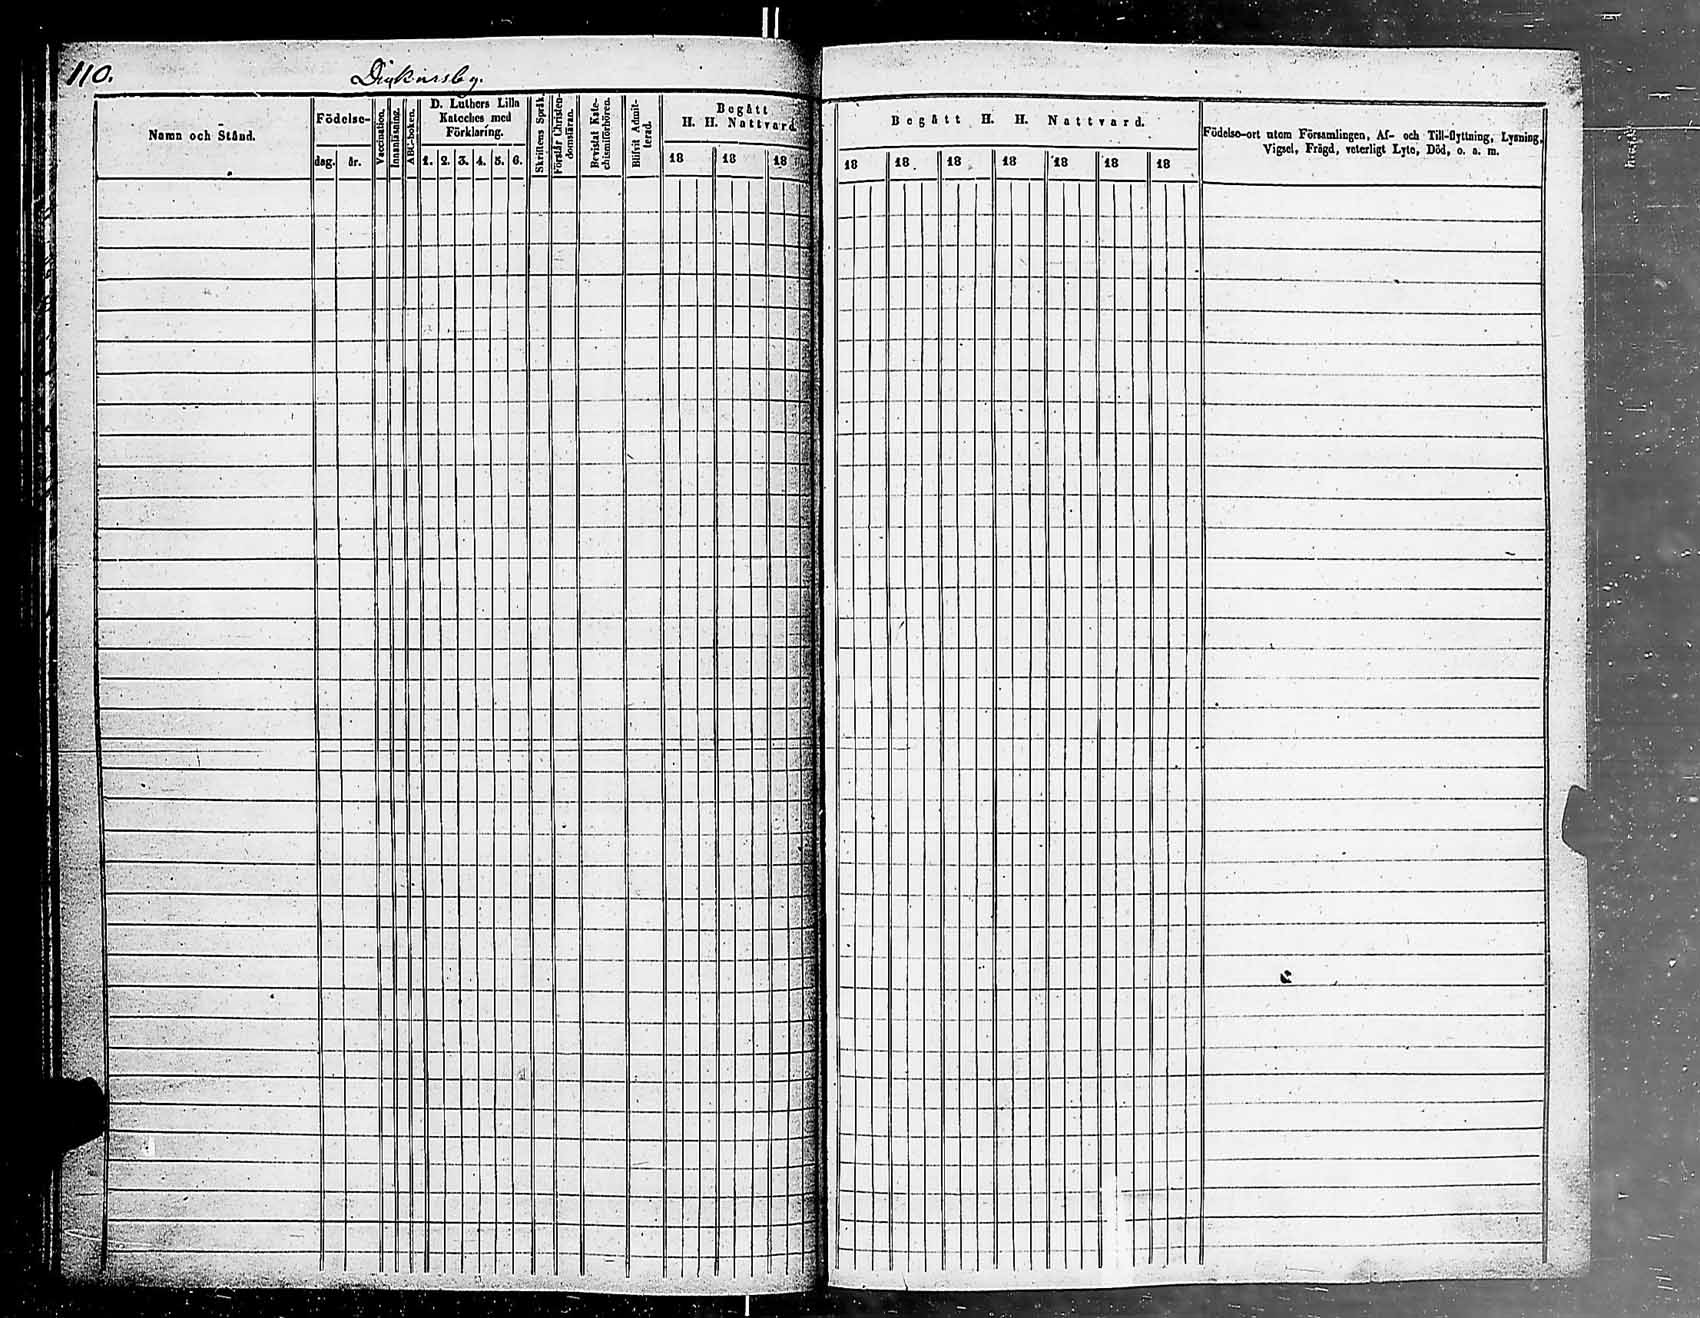 110.
Dickursby.
Namn och Stånd.
Födelse-
dag. år.
Vaccination.
Innanläsning.
ABC-boken.
D. Luthers Lilla
Kateches med
Förklaring.
1. 2. 3. 4. 5. 6.
Skriftens Språk.
Förstår Christen-
domsläran.
Bevistat Kate-
chismiförhören.
Blifvit Admit-
terad.
Begått
H. H. Nattvard.
18 18 18
Begått H. H. Nattvard.
18 18 18 18 18 18 18
Födelse-ort utom Församlingen, Af- och Till-flyttning, Lysning,
Vigsel, Frägd, veterligt Lyte, Död, o. a. m.